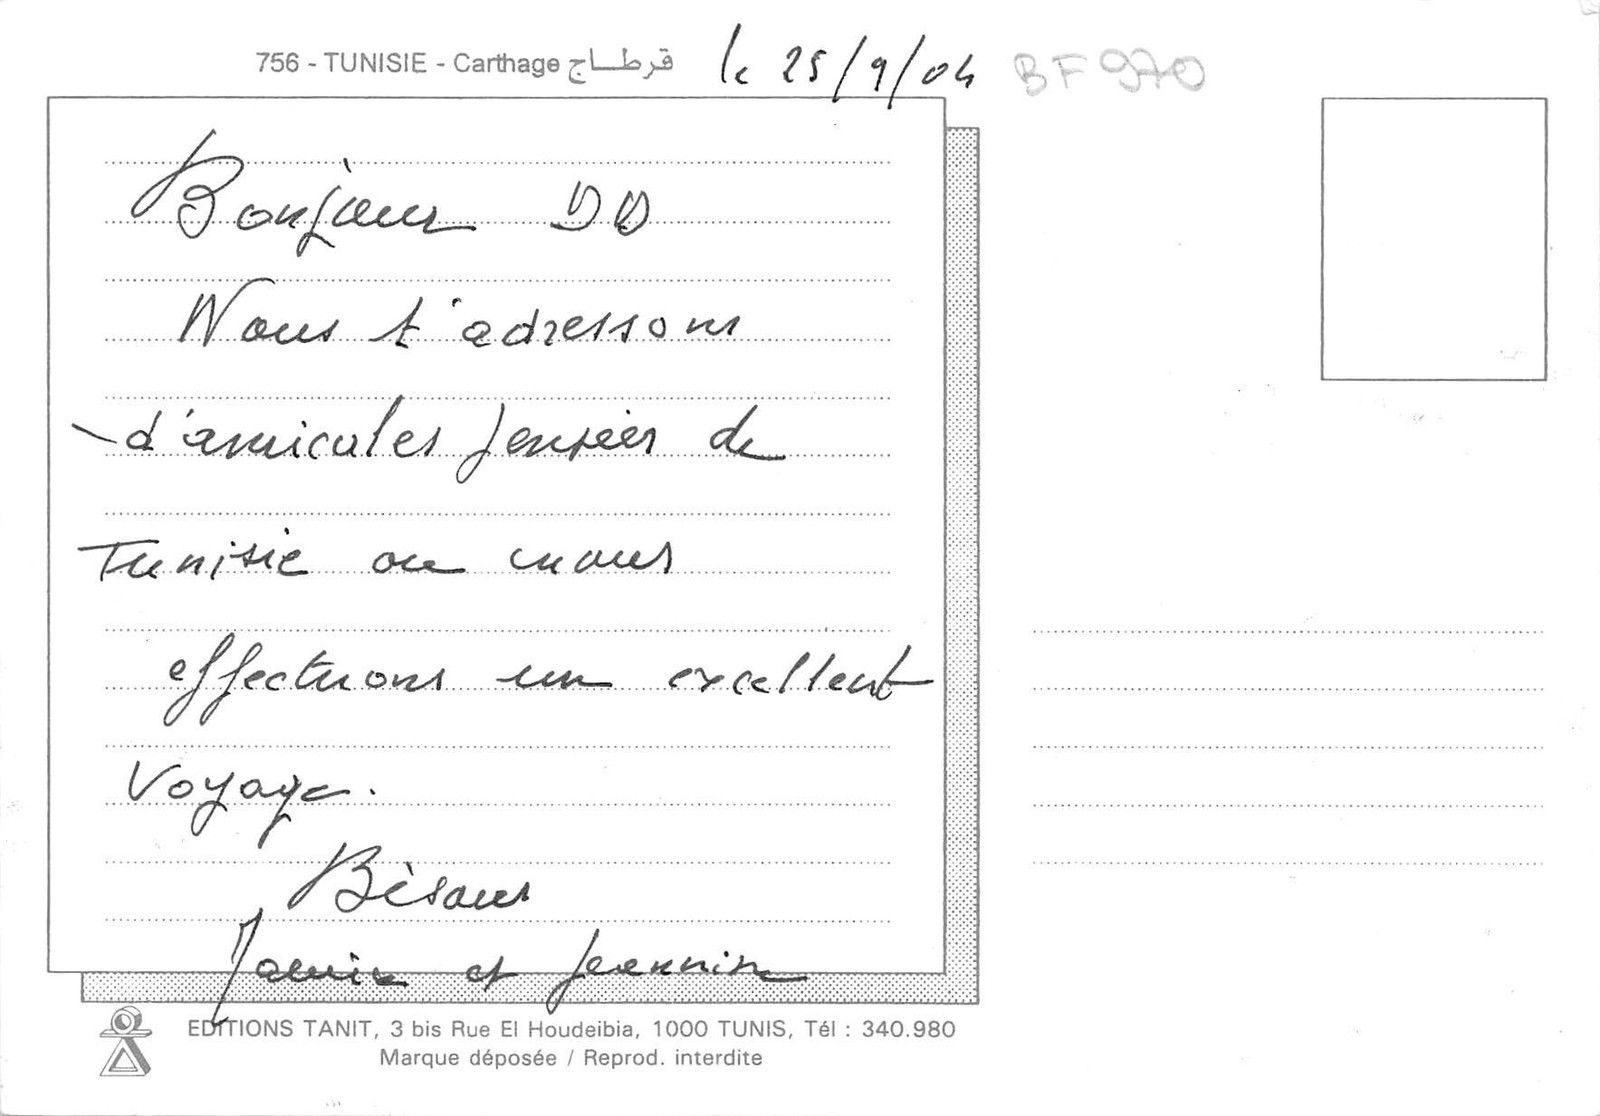 756 - TUNISIE - Carthage قرطاج le 25/9/04 BF 970
Bonjour DD
Nous t'adressons
d'amicales pensées de
Tunisie ou nous
effectuons un excellent
voyage.
Bisous
et Jeannine
EDITIONS TANIT, 3 bis Rue El Houdeibia, 1000 TUNIS, Tél : 340.980
Marque déposée / Reprod. interdite